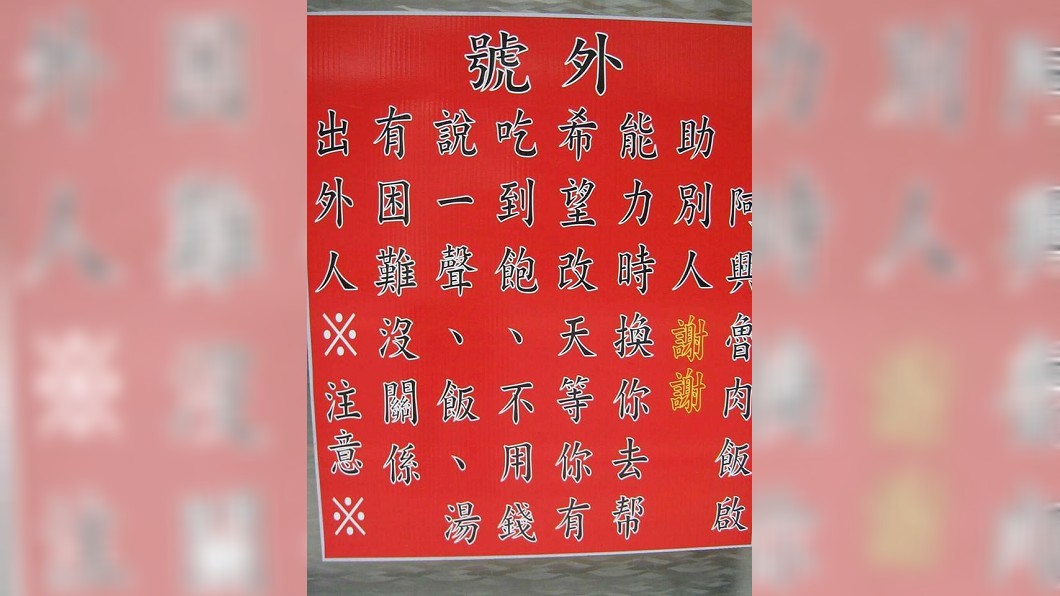 號外
出外人※注意※
有困難沒關係
說一聲、飯、湯
吃到飽、不用錢
希望改天等你有
能力時換你去帮
助別人謝謝
阿興魯肉飯啟